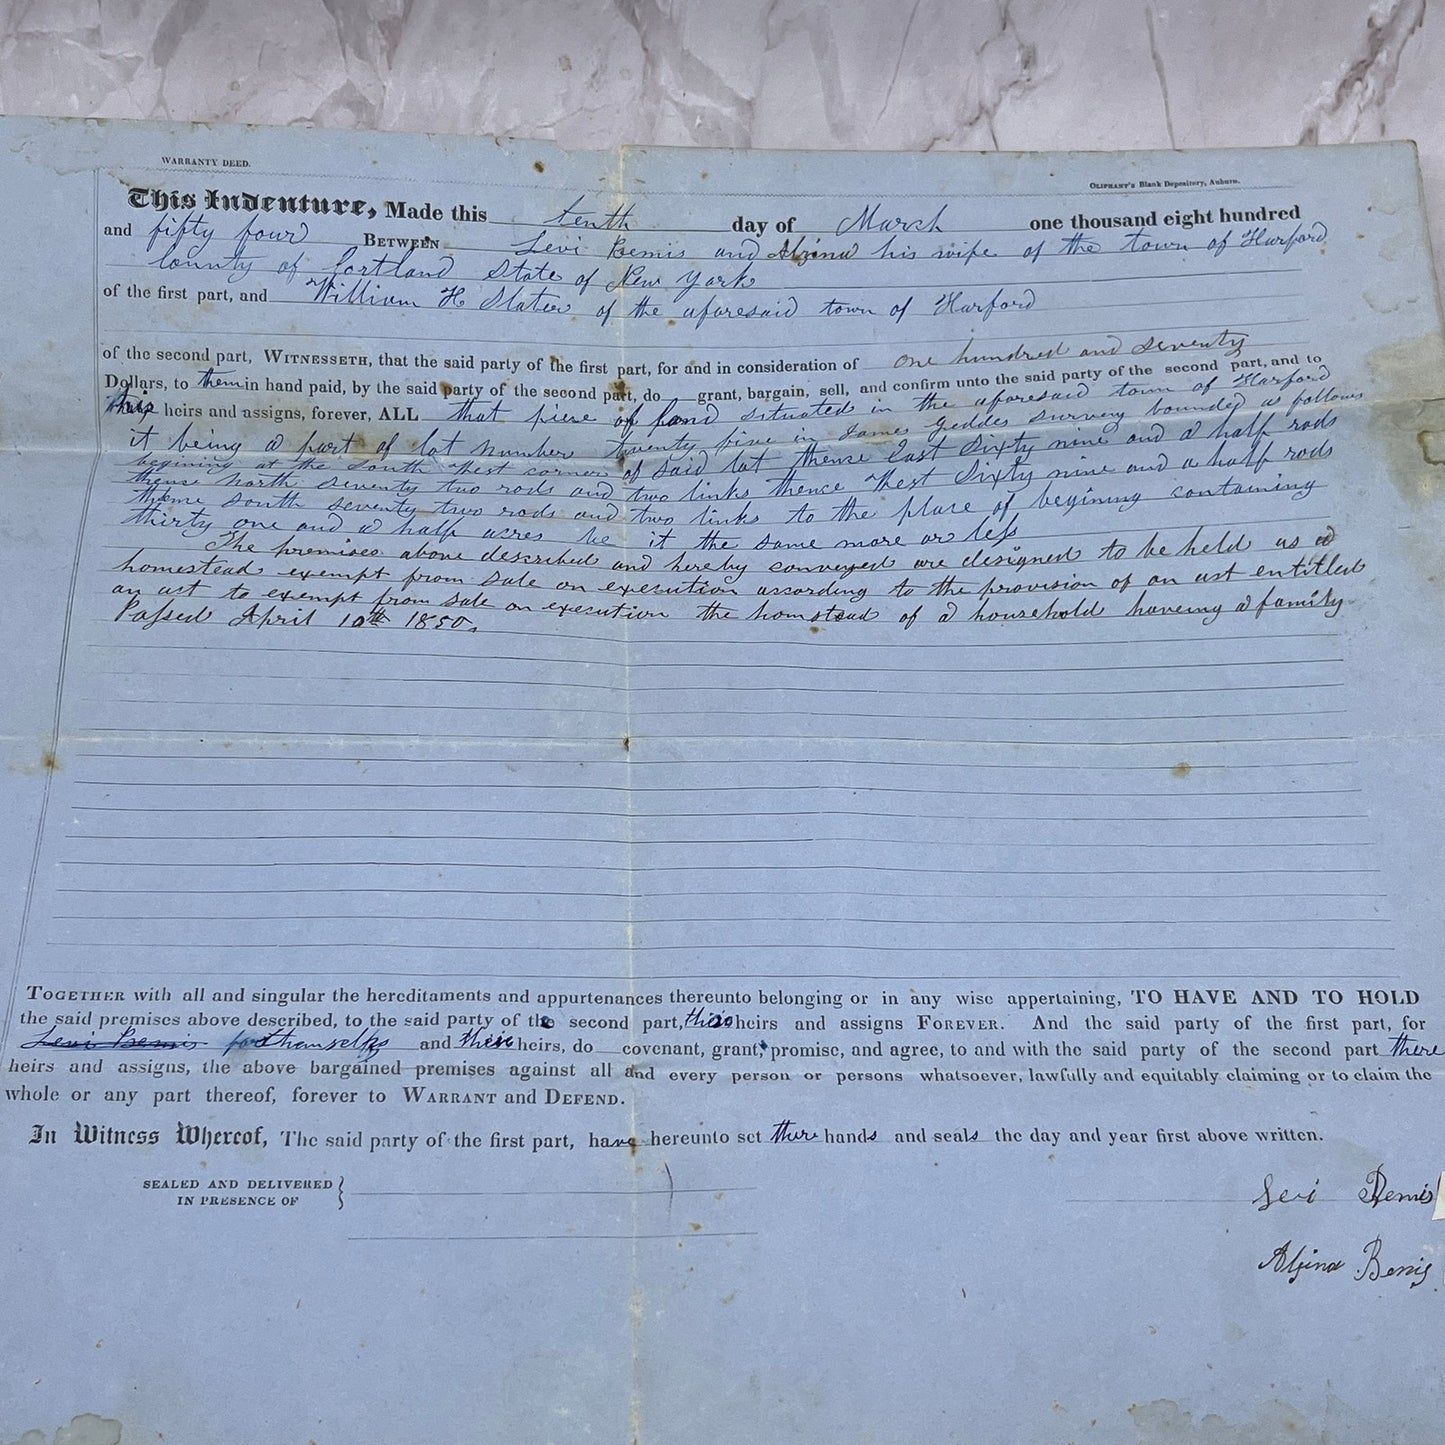 WARRANTY DEED.
OLIPHANT'S Blank Depository, Auburn.
This Indenture, Made this tenth day of March one thousand eight hundred
and fifty four BETWEEN Levi Bemis and his wife of the town of Harford
County of Cortland State of New York
of the first part, and William H Slater of the aforesaid town of Harford
of the second part, WITNESSETH, that the said party of the first part, for and in consideration of one hundred and seventy
Dollars, to them in hand paid, by the said party of the second part, do grant, bargain, sell, and confirm unto the said party of the second part, and to
his heirs and assigns, forever, ALL that piece of land situated in the aforesaid town of Harford
it being a part of lot number twenty five in James Geddes survey bounded as follows
begining at the South West corner of said lot thence East Sixty nine and a half rods
thense North seventy two rods and two links thence West Sixty nine and a half rods
thense South seventy two rods and two links to the place of begining containing
thirty one and a half acres be it the same more or less
The premises above described and hereby conveyed are designed to be held as a
homestead exempt from sale on execution according to the provision of an act entitled
an act to exempt from sale on execution the homstead of a household haveing a family
Passed April 10th 1850.
TOGETHER with all and singular the hereditaments and appurtenances thereunto belonging or in any wise appertaining, TO HAVE AND TO HOLD
the said premises above described, to the said party of the second part, heirs and assigns FOREVER. And the said party of the first part, for
Levi Bemis for themselfs and heirs, do covenant, grant, promise, and agree, to and with the said party of the second part there
heirs and assigns, the above bargained premises against all and every person or persons whatsoever, lawfully and equitably claiming or to claim the
whole or any part thereof, forever to WARRANT and DEFEND.
In Witness Whereof, The said party of the first part, have hereunto set there hands and seals the day and year first above written.
SEALED AND DELIVERED
IN PRESENCE OF
Levi Bemis
Bemis